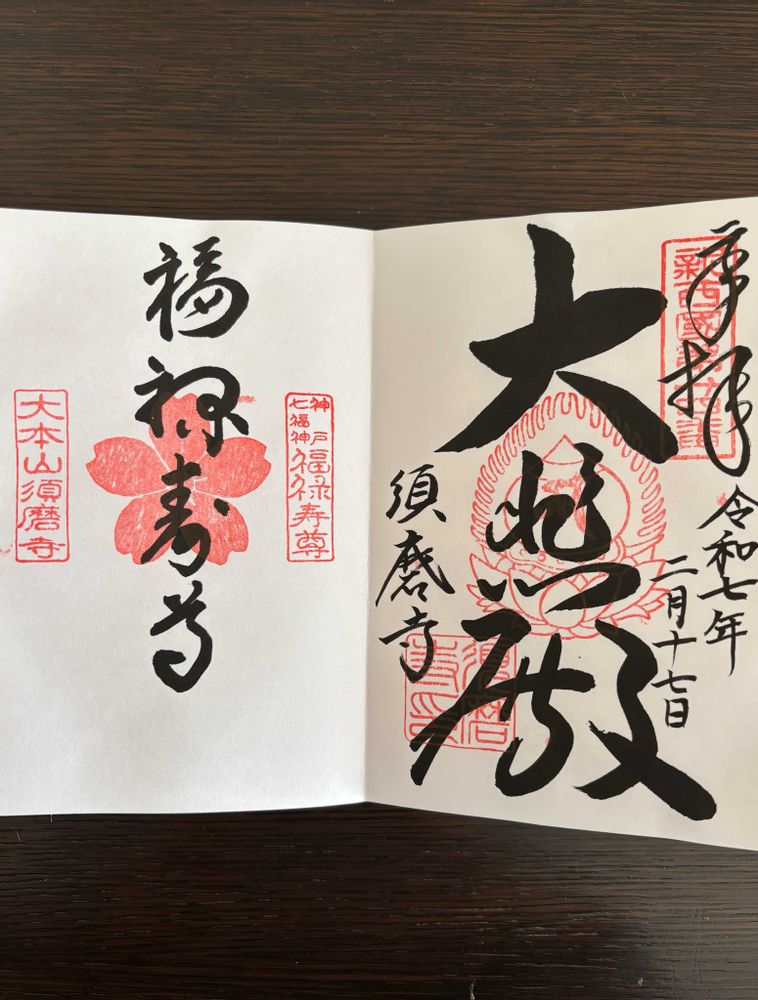 奉拝
新西國第廿四番
令和七年
二月十七日
大悲殿
須磨寺
須磨寺印
神戸七福神
福禄寿尊
福禄寿尊
大本山須磨寺